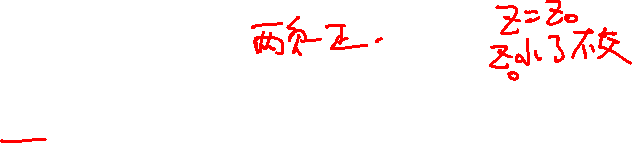 两负一正.
z=z₀
z₀小了不交